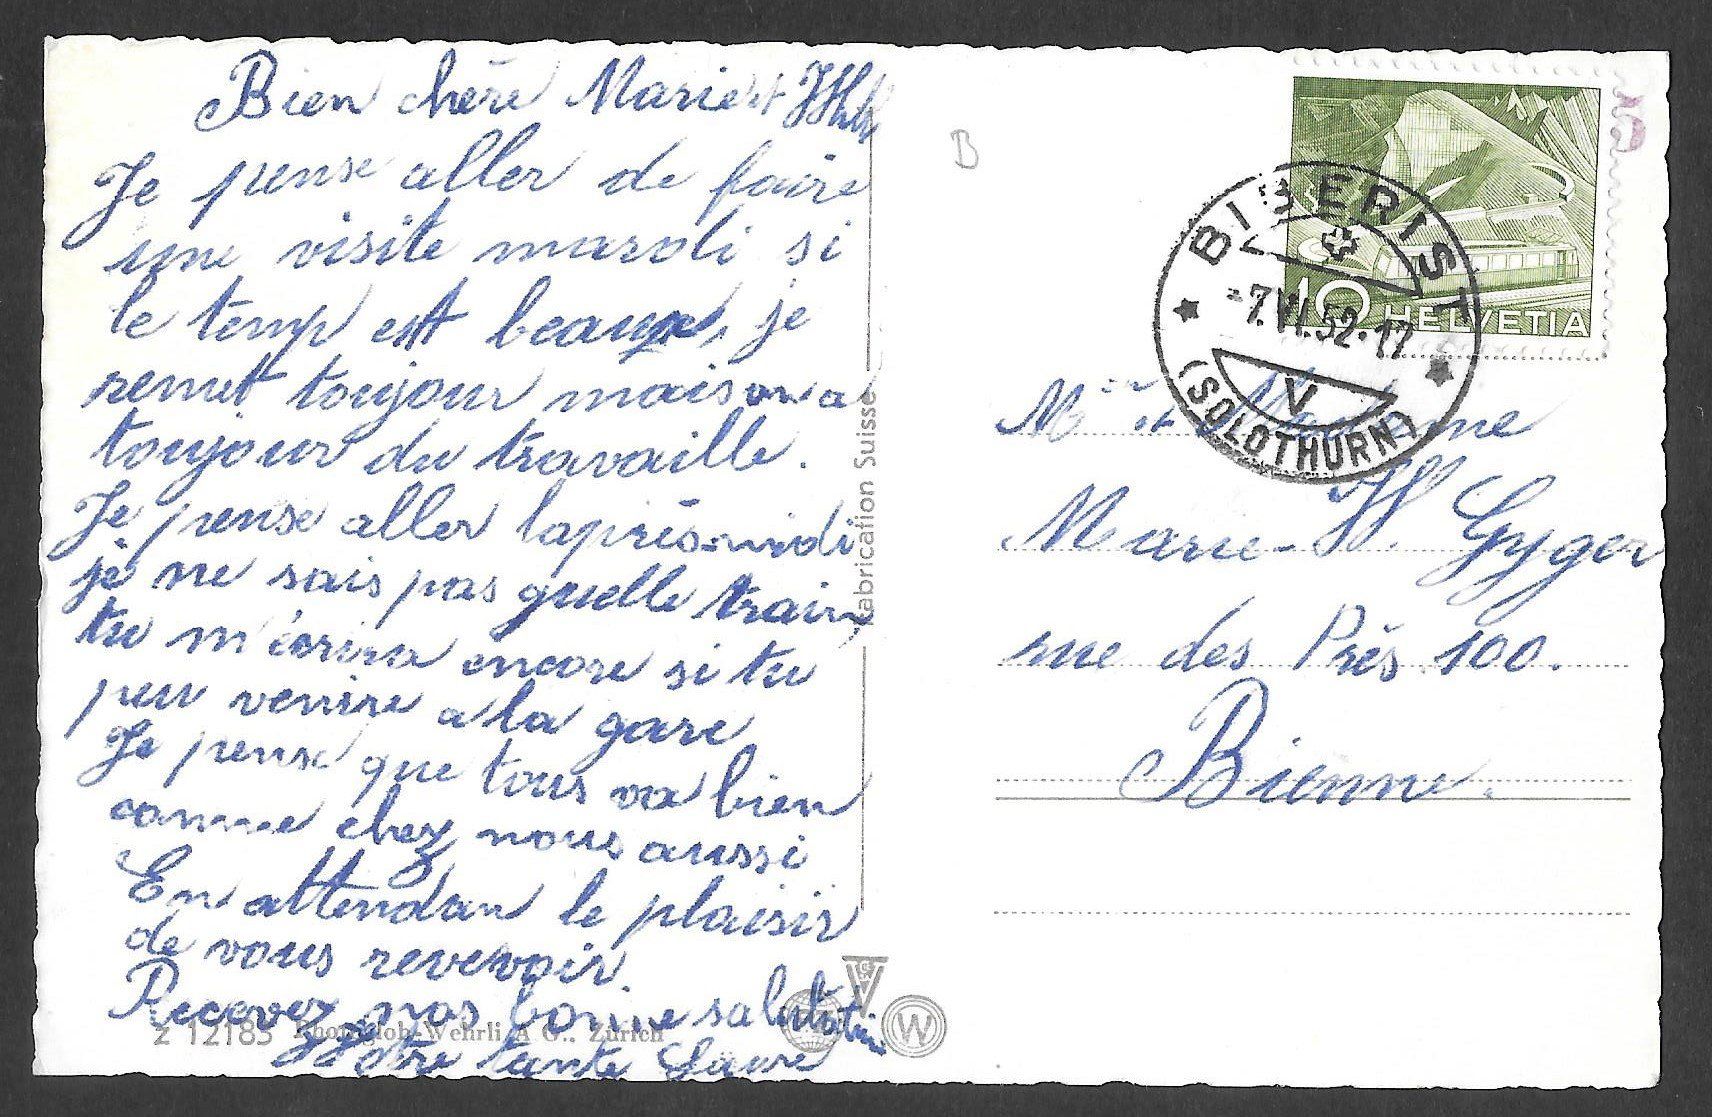 Bien chère Marie et
Je pense aller de faire
une visite mardi si
le temp est beau, je
remet toujour mais on a
toujour du travaille.
Je pense aller laprés-midi
je ne sais pas quelle train
tu m'écrira encore si tu
peu venire a la gare
Je pense que tous va bien
comme chez nous aussi
En attendan le plaisir
de vous revevoir.
Recevez nos bonne salutation
Votre tante Laure
Z 12185 Photoglob-Wehrli A G., Zürich
Fabrication Suisse
W
B
10 HELVETIA
BIBERIST
-7.VI.52-17
V
(SOLOTHURN)
Mr et Madame
Marie-W. Gyger
rue des Prés 100.
Bienne.